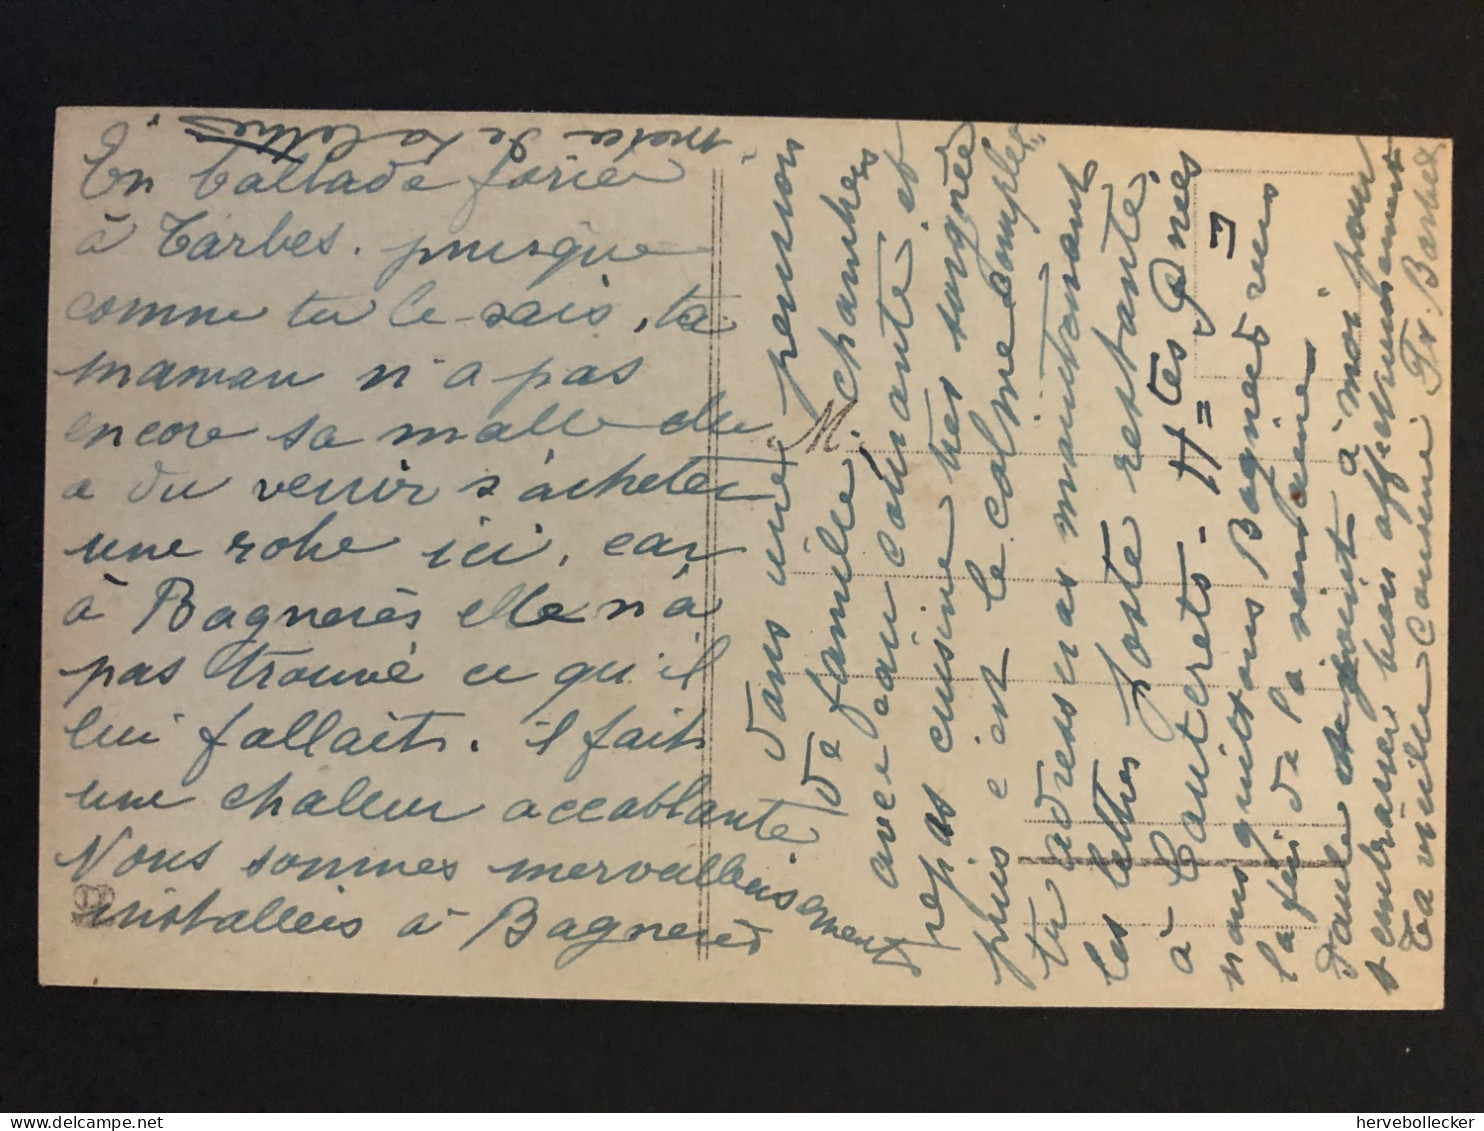 merci de ta lettre
En ballade forcée
à Tarbes. puisque
comme tu le sais, ta
maman n'a pas
encore sa malle elle
a du venir s'acheter
une robe ici, car
à Bagnerès elle n'a
pas trouvé ce qu'il
lui fallait. il fait
une chaleur accablante
Nous sommes merveilleusement
installeés à Bagnerès
dans une pension
de famille, chambres
avec eau courante et
repas cuisine très soignée
puis c'est le calme complet
tu adresseras maintenant
les lettres Poste restante
à Cauterets - H = tes Pynées =
nous quittons Bagneres vers
la fin de la semaine.
Paule se joint à moi pour
t'embrasser bien affectueusement
Ta vieille Cousine Fr. Barbet
M.
hervebollecker